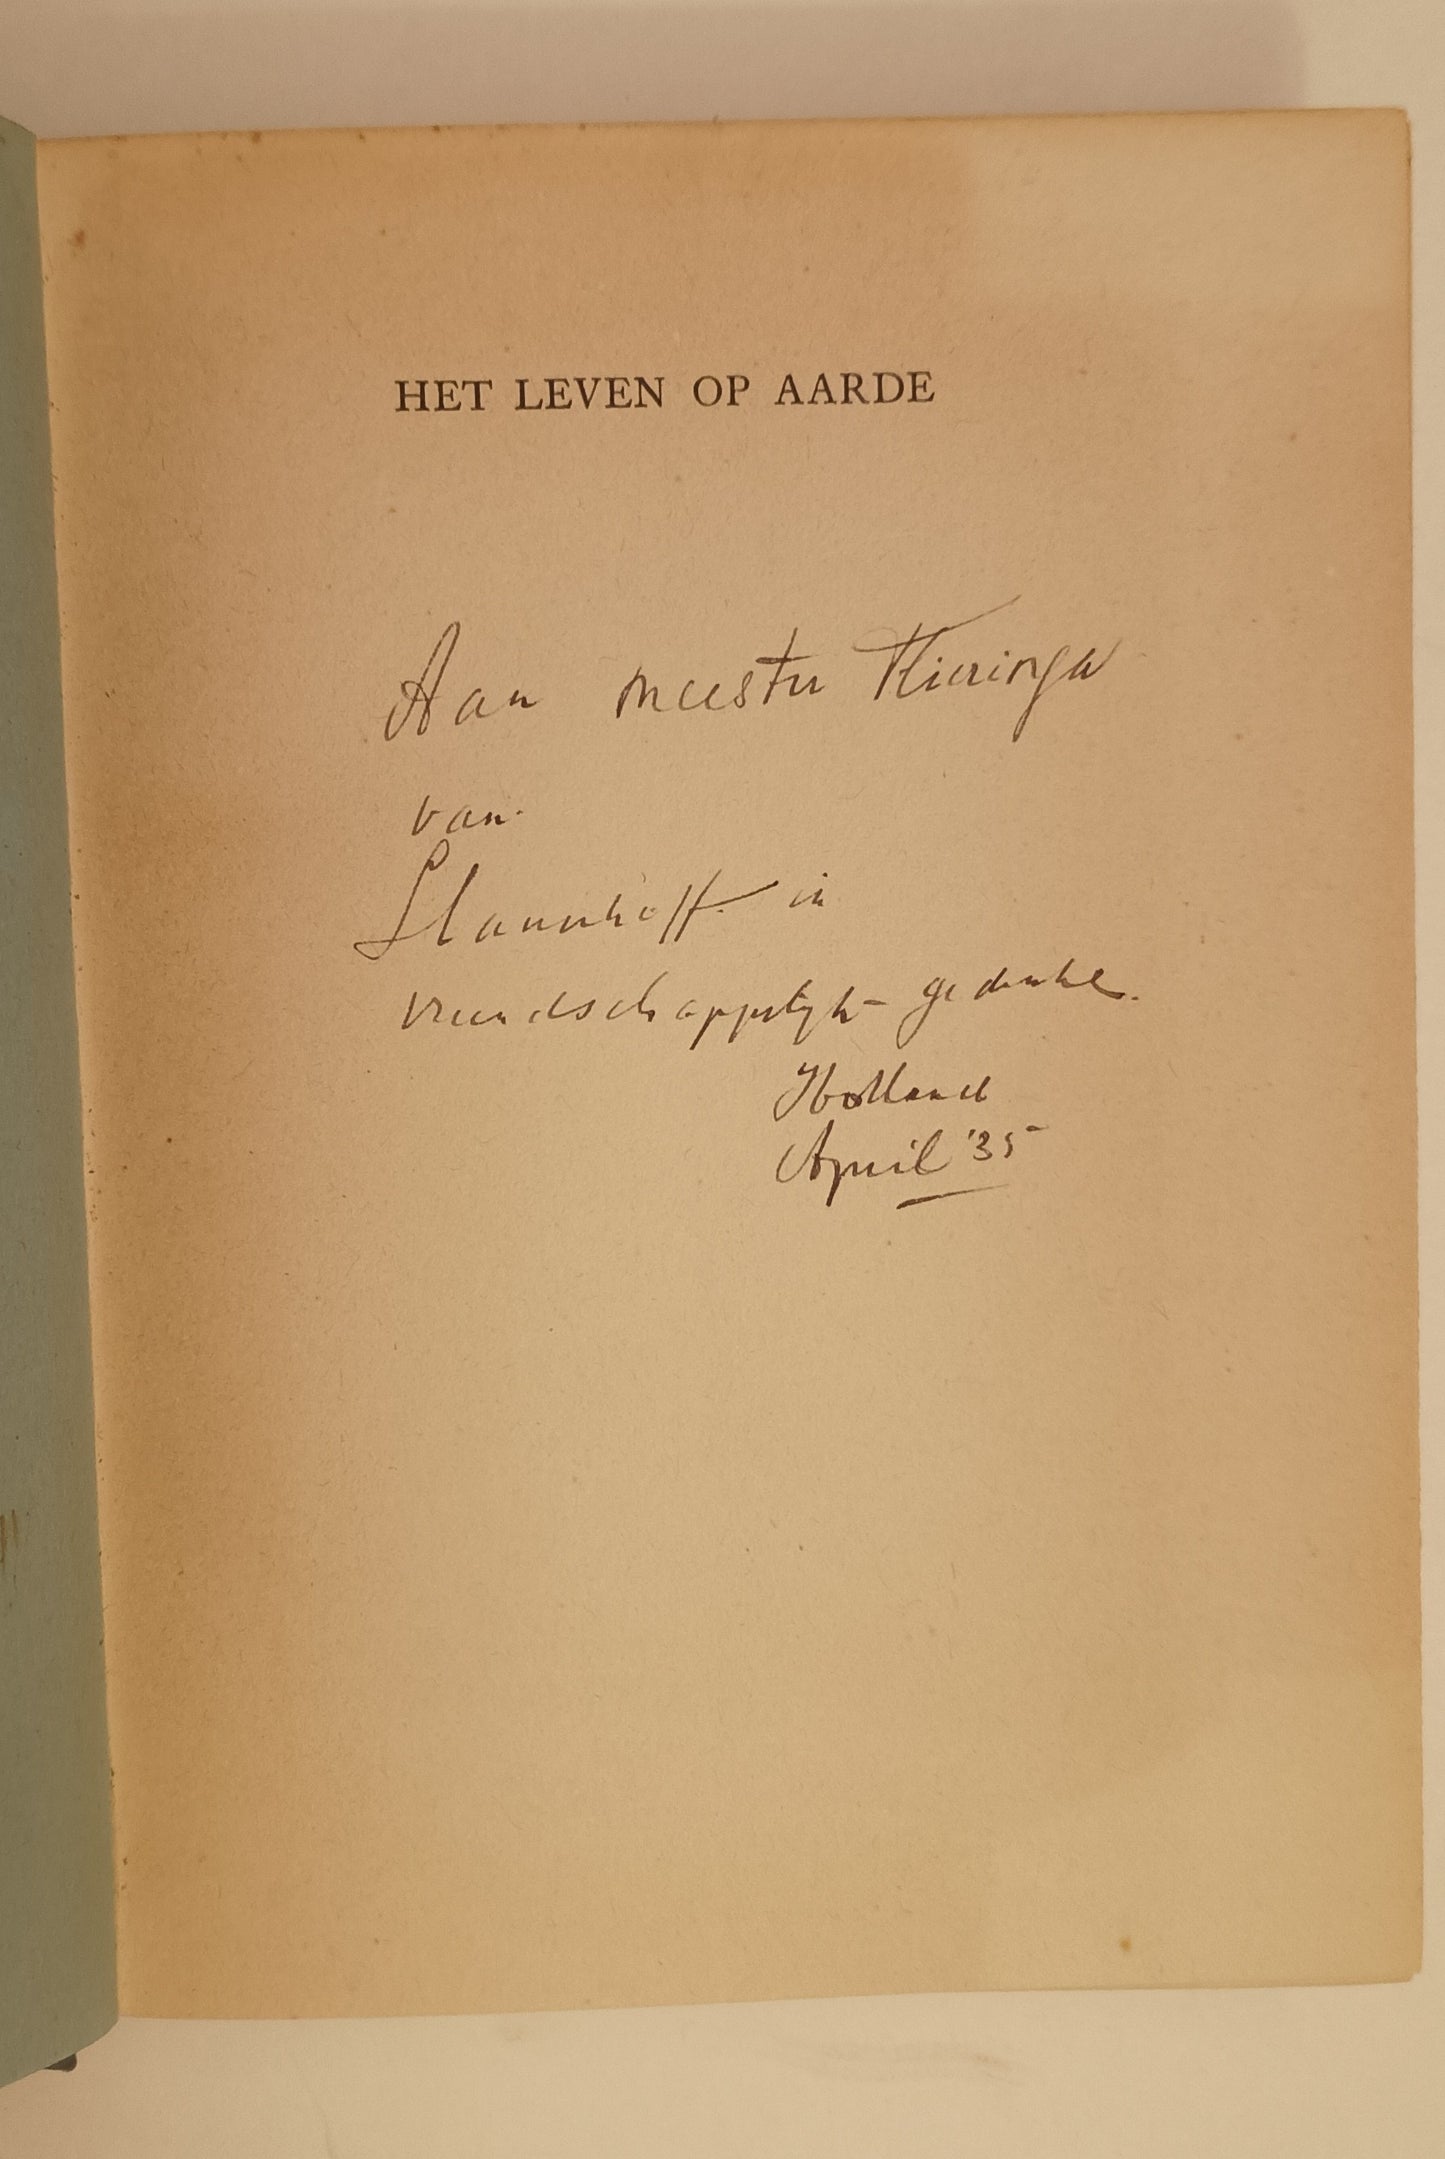 HET LEVEN OP AARDE
Aan meester
van
Slauerhoff in
vriendschappelijk gedenken.
Holland
April '35